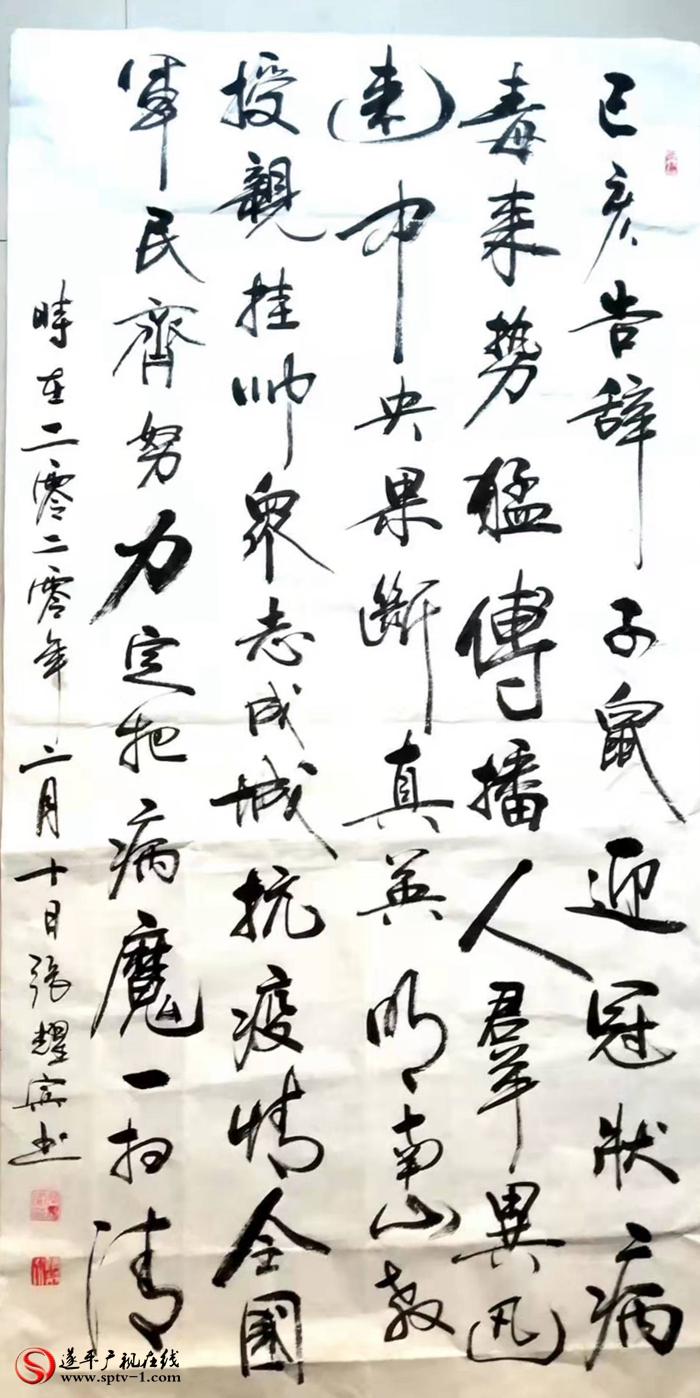 己亥告辞子鼠迎冠狀病
毒来势猛傳播人羣異迅
速中央果斷真英明南山教
授親挂帅衆志成城抗疫情全國
軍民齊努力定把病魔一扫清
時在二零二零年二月十日張耀宾书
遂平广视在线
www.sptv-1.com